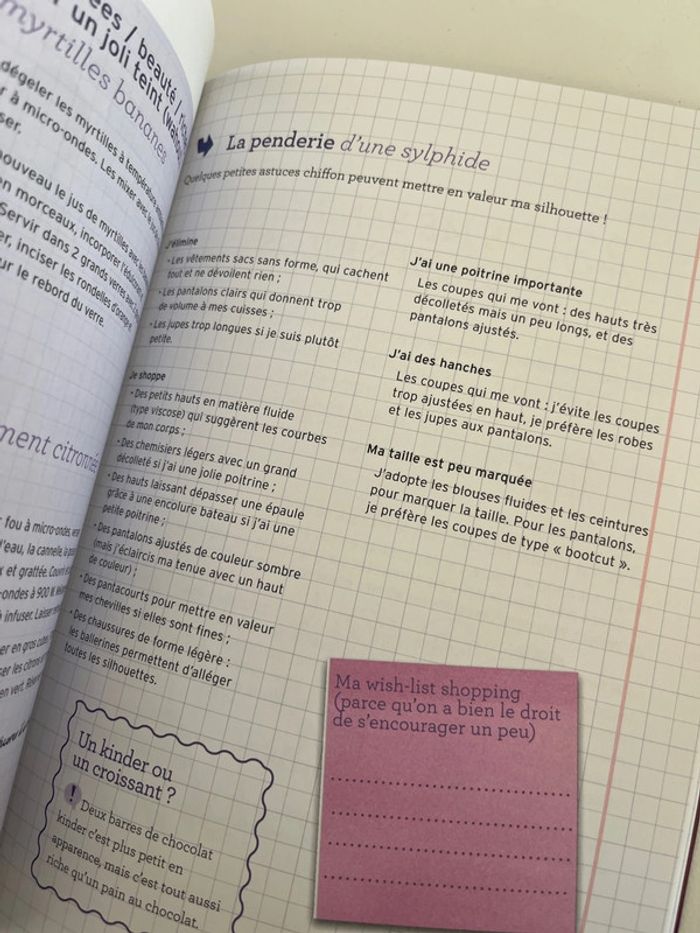 ées / beauté /
un joli teint
myrtilles bananes
dégeler les myrtilles à température
à micro-ondes. Les mixer avec le
ser.
nouveau le jus de myrtilles avec
en morceaux, incorporer
Servir dans 2 grands verres avec
er, inciser les rondelles d'orange
ur le rebord du verre.
ment citronnée
fou à micro-ondes,
l'eau, la cannelle,
x et grattée.
-ondes à 900 W.
à infuser. Laisser
er en gros
ser les citrons
en vert.
La penderie d'une sylphide
Quelques petites astuces chiffon peuvent mettre en valeur ma silhouette !
J'élimine
• Les vêtements sacs sans forme, qui cachent
tout et ne dévoilent rien ;
• Les pantalons clairs qui donnent trop
de volume à mes cuisses ;
• Les jupes trop longues si je suis plutôt
petite.
Je shoppe
• Des petits hauts en matière fluide
(type viscose) qui suggèrent les courbes
de mon corps ;
• Des chemisiers légers avec un grand
décolleté si j'ai une jolie poitrine ;
• Des hauts laissant dépasser une épaule
grâce à une encolure bateau si j'ai une
petite poitrine ;
• Des pantalons ajustés de couleur sombre
(mais j'éclaircis ma tenue avec un haut
de couleur) ;
• Des pantacourts pour mettre en valeur
mes chevilles si elles sont fines ;
• Des chaussures de forme légère :
les ballerines permettent d'alléger
toutes les silhouettes.
J'ai une poitrine importante
Les coupes qui me vont : des hauts très
décolletés mais un peu longs, et des
pantalons ajustés.
J'ai des hanches
Les coupes qui me vont : j'évite les coupes
trop ajustées en haut, je préfère les robes
et les jupes aux pantalons.
Ma taille est peu marquée
J'adopte les blouses fluides et les ceintures
pour marquer la taille. Pour les pantalons,
je préfère les coupes de type « bootcut ».
Un kinder ou
un croissant ?
! Deux barres de chocolat
kinder c'est plus petit en
apparence, mais c'est tout aussi
riche qu'un pain au chocolat.
Ma wish-list shopping
(parce qu'on a bien le droit
de s'encourager un peu)